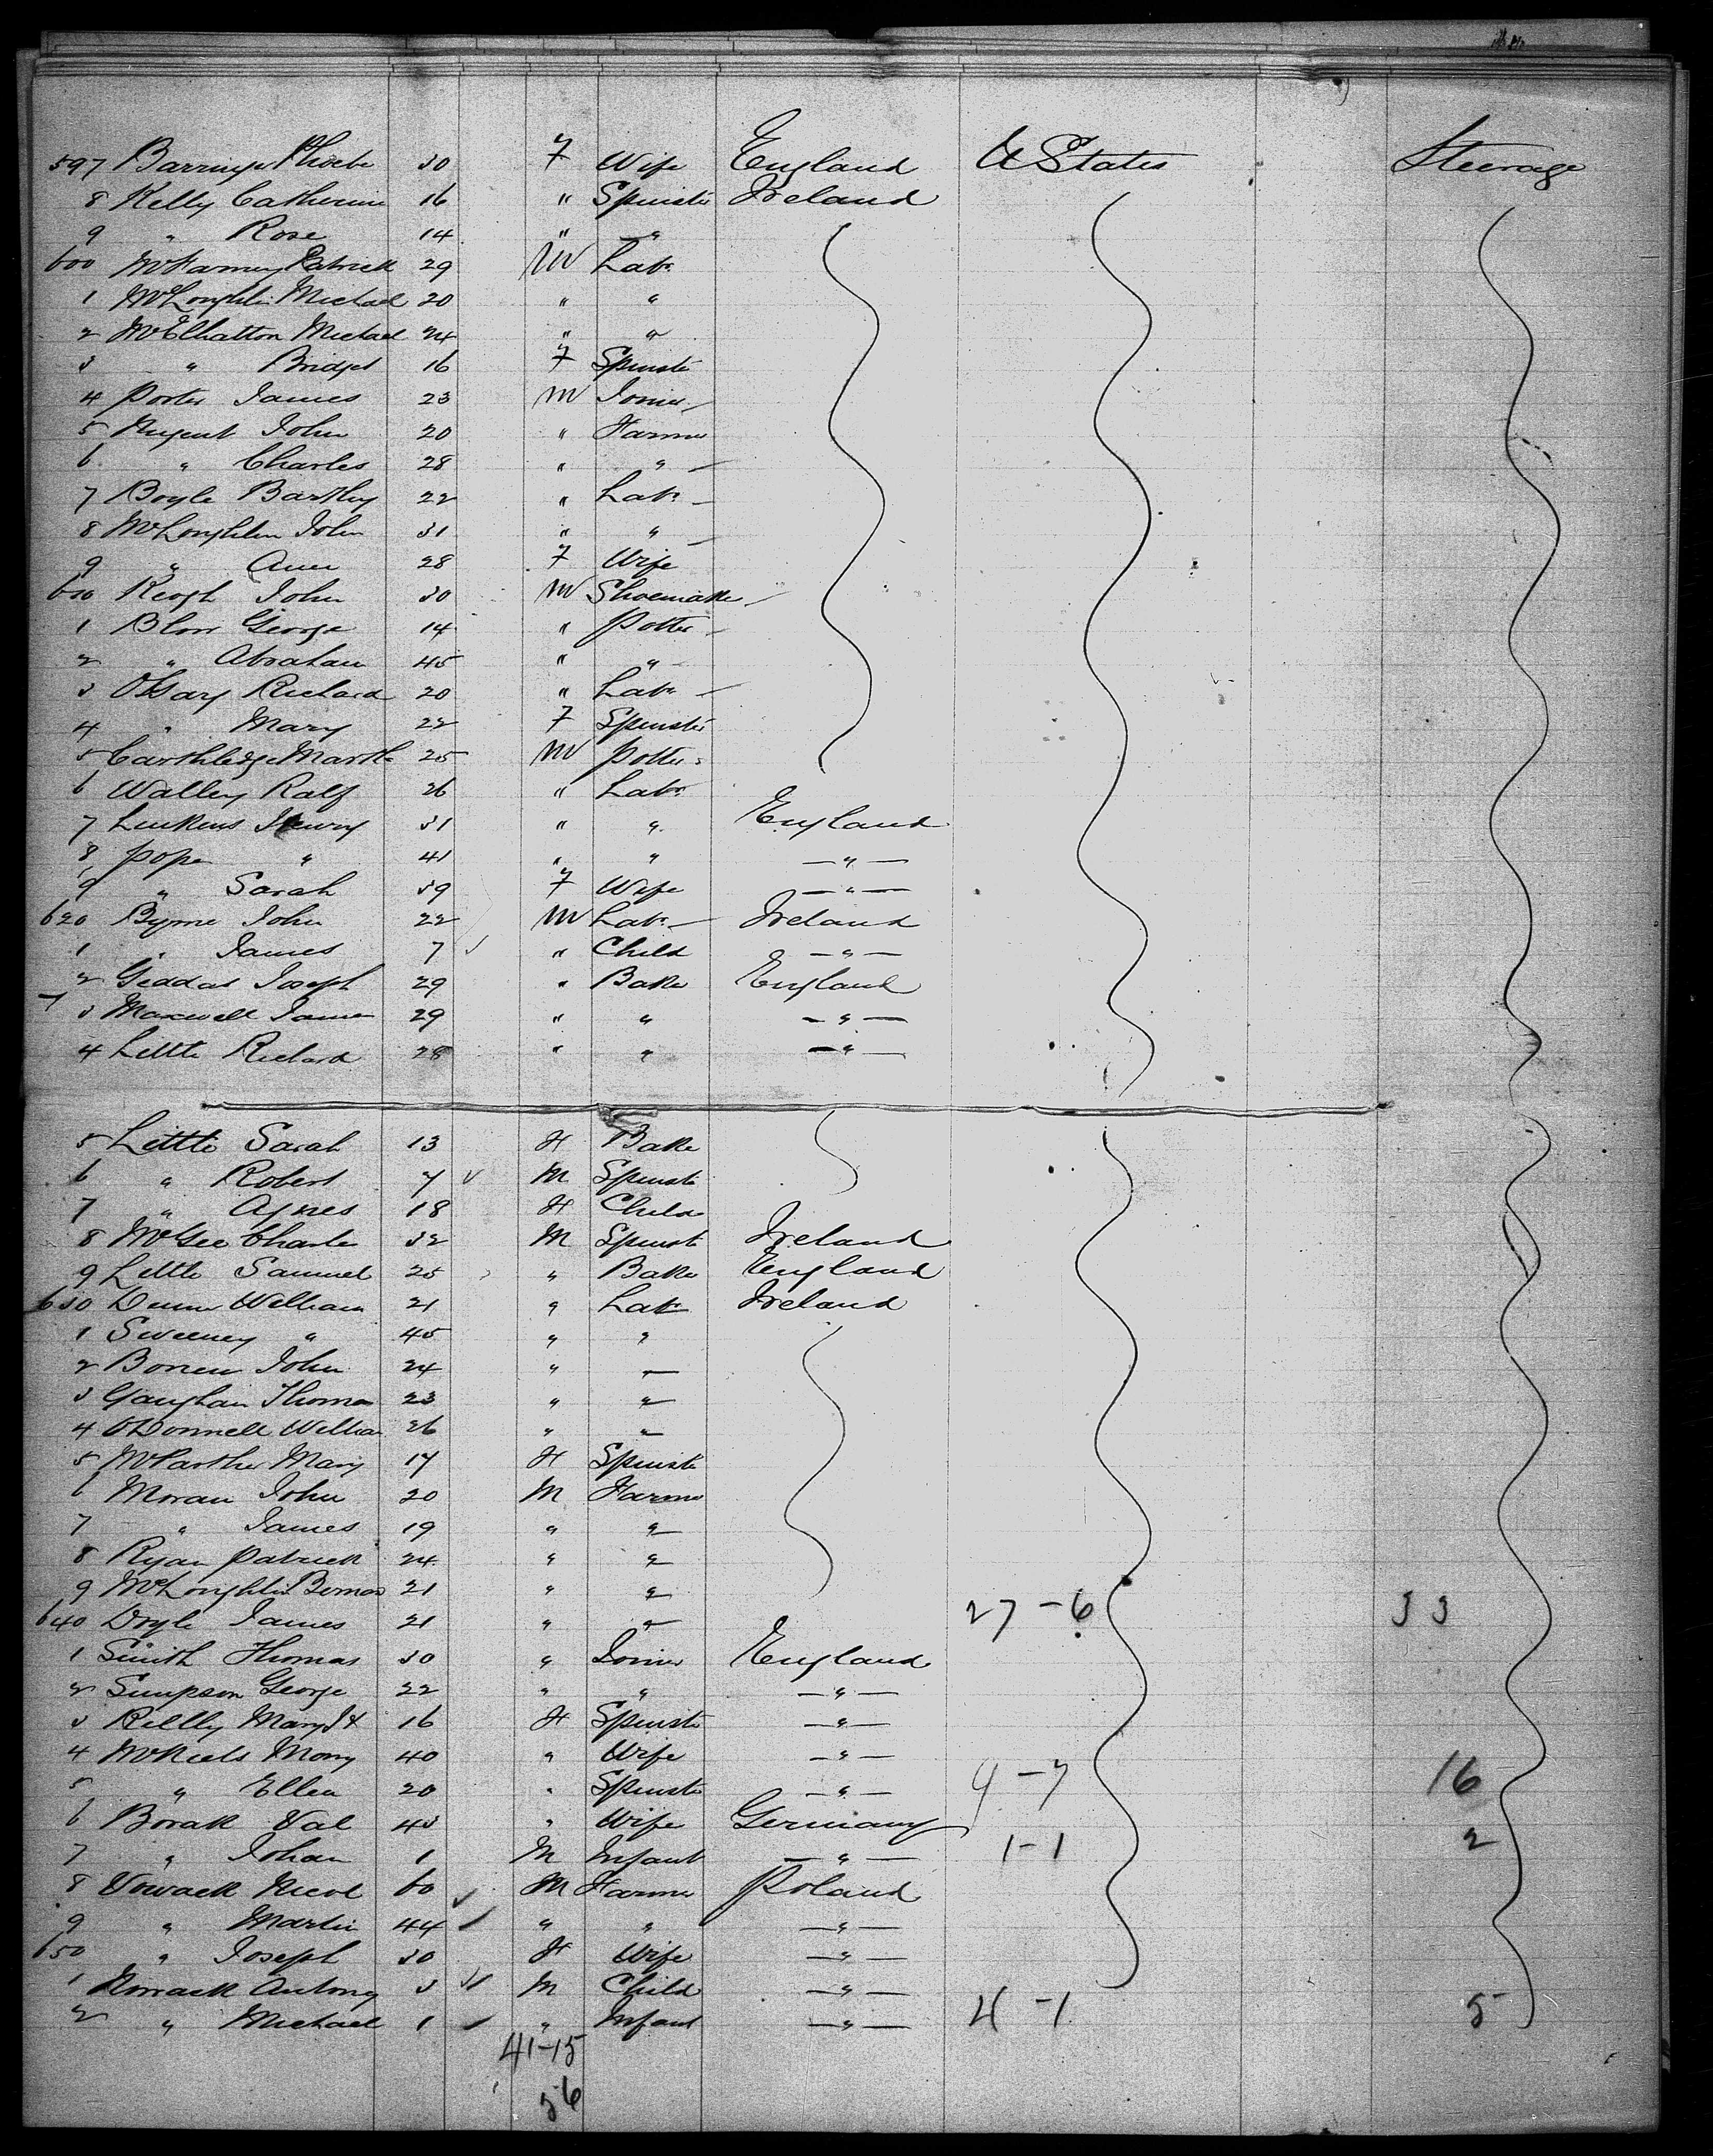 597 Barringer Phoebe 30 F Wife England U States Steerage
8 Kelly Catherine 16 " Spinster Ireland
9 " Rose 14 " "
600 Patrick 29 M Labr
1 McLoughlin Michael 20 " "
2 McElhatton Michael 24 " "
3 " Bridget 16 F Spinster
4 Porter James 23 M Joiner
5 Nugent John 20 " Farmer
6 " Charles 28 " "
7 Boyle Bartley 22 " Labr
8 McLoughlin John 31 " "
9 " Ann 28 F Wife
610 Keogh John 30 M Shoemaker
1 Blow George 14 " Potter
2 " Abraham 45 " "
3 Richard 20 " Labr
4 " Mary 22 F Spinster
5 Carthledge Martha 25 M Potter
6 Walley Ralf 26 " Labr
7 Henry 31 " " England
8 Pope " 41 " " "
9 " Sarah 39 F Wife "
620 Byrne John 22 M Labr Ireland
1 " James 7 " Child "
2 Geddas Joseph 29 " Baker England
3 Maxwell James 29 " " "
4 Little Richard 28 " " "
5 Little Sarah 13 F Baker
6 " Robert 7 M Spinster
7 " Agnes 18 F Child
8 McGee Charles 32 M Spinster Ireland
9 Little Samuel 25 " Baker England
630 Dunn William 21 " Labr Ireland
1 Sweeney " 45 " "
2 John 24 " "
3 Gaughan Thomas 23 " "
4 O'Donnell William 26 " "
5 Mary 17 F Spinster
6 Moran John 20 M Farmer
7 " James 19 " "
8 Ryan Patrick 24 " "
9 McLoughlin Bernard 21 " "
640 Doyle James 21 " " 27-6 33
1 Smith Thomas 30 " Joiner England
2 Simpson George 22 " " "
3 Reilly Mary 16 F Spinster "
4 Mary 40 " Wife "
5 " Ellen 20 " Spinster " 9-7 16
6 Borak Val 43 " Wife Germany
7 " Johan 1 M Infant " 1-1 2
8 Nowack Nicol 60 M Farmer Poland
9 " Martin 44 " " "
650 " Joseph 30 F Wife "
1 Nowack Antony 3 M Child "
2 " Michael 1 " Infant " 4-1 5
41-15
56